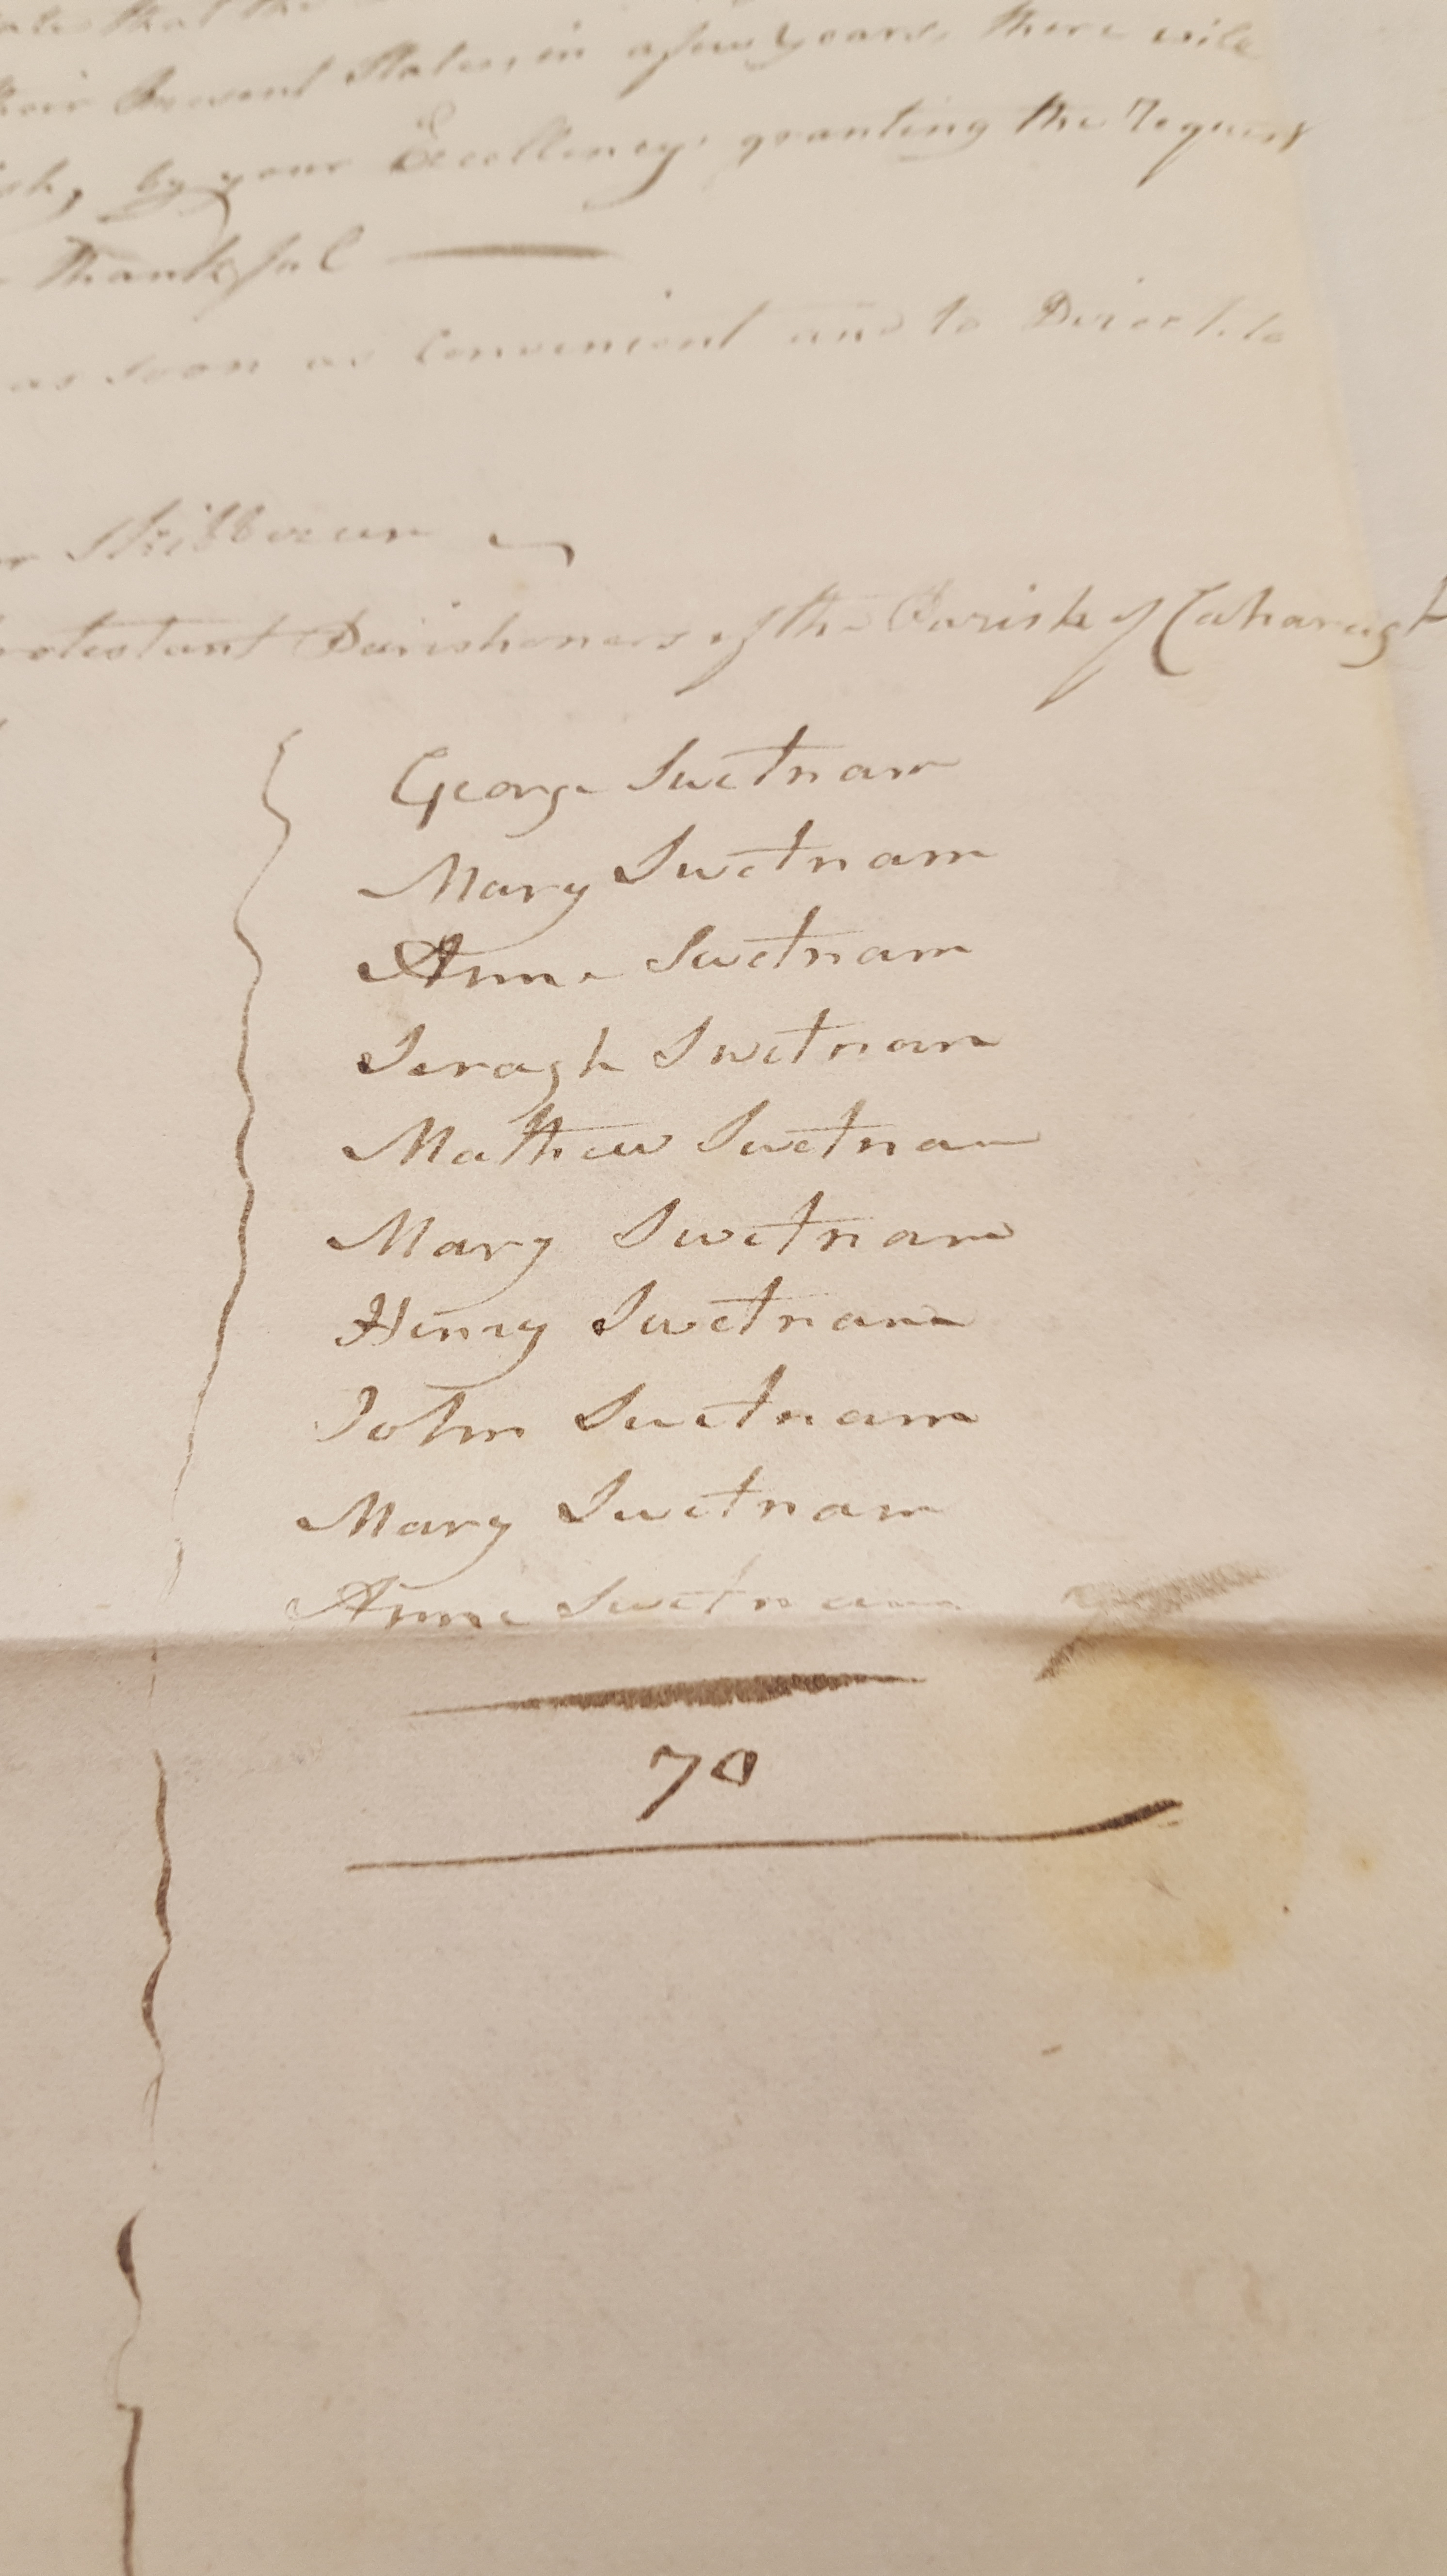 that the
Present States, in a few years, there will
by your Excellency granting the Request
Thankful
as soon as Convenient and to Direct to
Skibbereen
Protestant Parishoners of the Parish of Caharagh
George Swetnam
Mary Swetnam
Anne Swetnam
Seragh Swetnam
Mathew Swetnam
Mary Swetnam
Henry Swetnam
John Swetnam
Mary Swetnam
Anne Swetnam
70